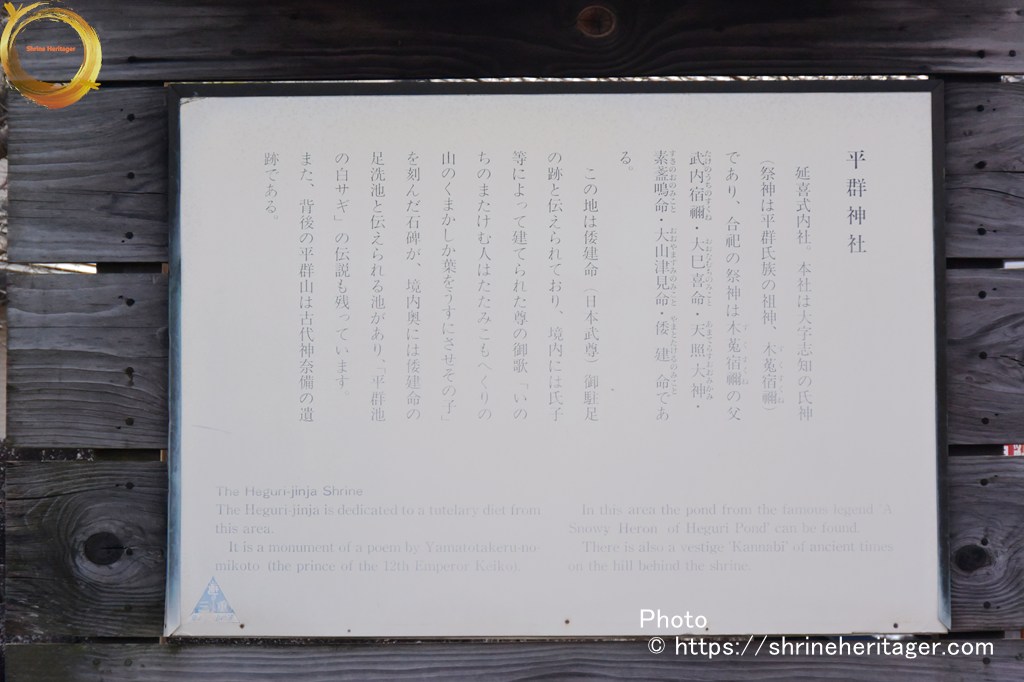 Shrine Heritager
平群神社
延喜式内社。本社は大字志知の氏神
(祭神は平群氏族の祖神、木菟宿禰)
であり、合祀の祭神は木菟宿禰の父
武内宿禰・大巳喜命・天照大神・
素盞鳴命・大山津見命・倭建命であ
る。
この地は倭建命(日本武尊)御駐足
の跡と伝えられており、境内には氏子
等によって建てられた尊の御歌「いの
ちのまたけむ人はたたみこもへくりの
山のくまかしか葉をうすにさせその子」
を刻んだ石碑が、境内奥には倭建命の
足洗池と伝えられる池があり、「平群池
の白サギ」の伝説も残っています。
また、背後の平群山は古代神奈備の遺
跡である。
The Heguri-jinja Shrine
The Heguri-jinja is dedicated to a totelary diet from
this area.
It is a monument of a poem by Yamatotakeru-no-
mikoto (the prince of the 12th Emperor Keiko).
In this area the pond from the famous legend 'A
Snowy Heron of Heguri Pond' can be found.
There is also a vestige 'Kannabi' of ancient times
on the hill behind the shrine.
Photo
© https://shrineheritager.com